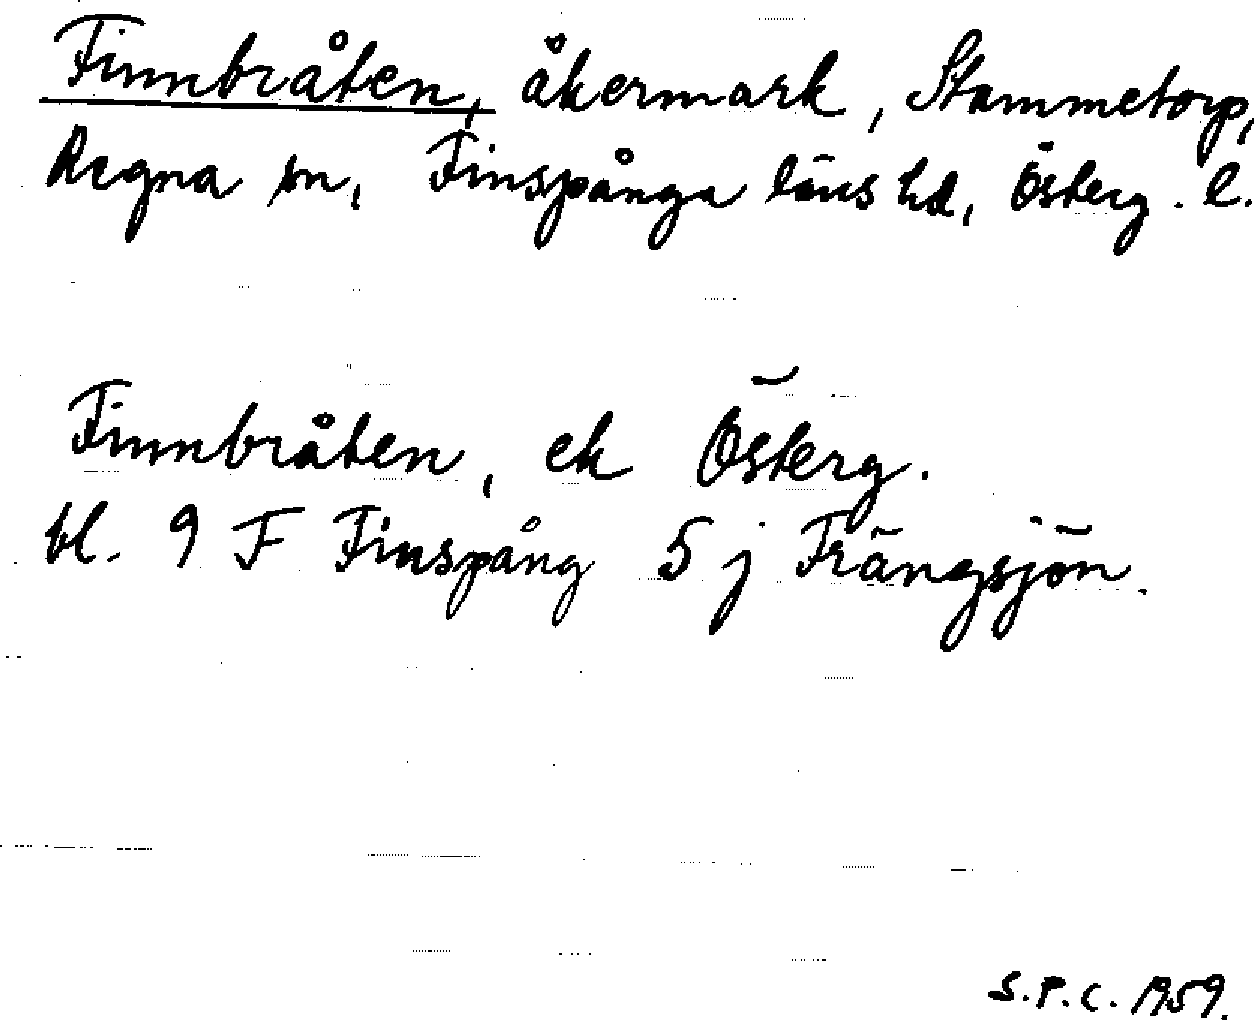 Finnbråten, åkermark, Stammetorp,
Regna sn, Finspånga läns hd, Österg. l.
Finnbråten, ek Österg.
bl. 9 F Finspång 5 j Frängsjön.
S.P.C. 1959.